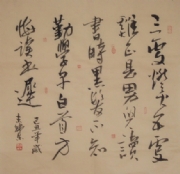 三更燈火五更
雞正是男兒讀
書時黑髮不知
勤學早白首方
悔讀書遲